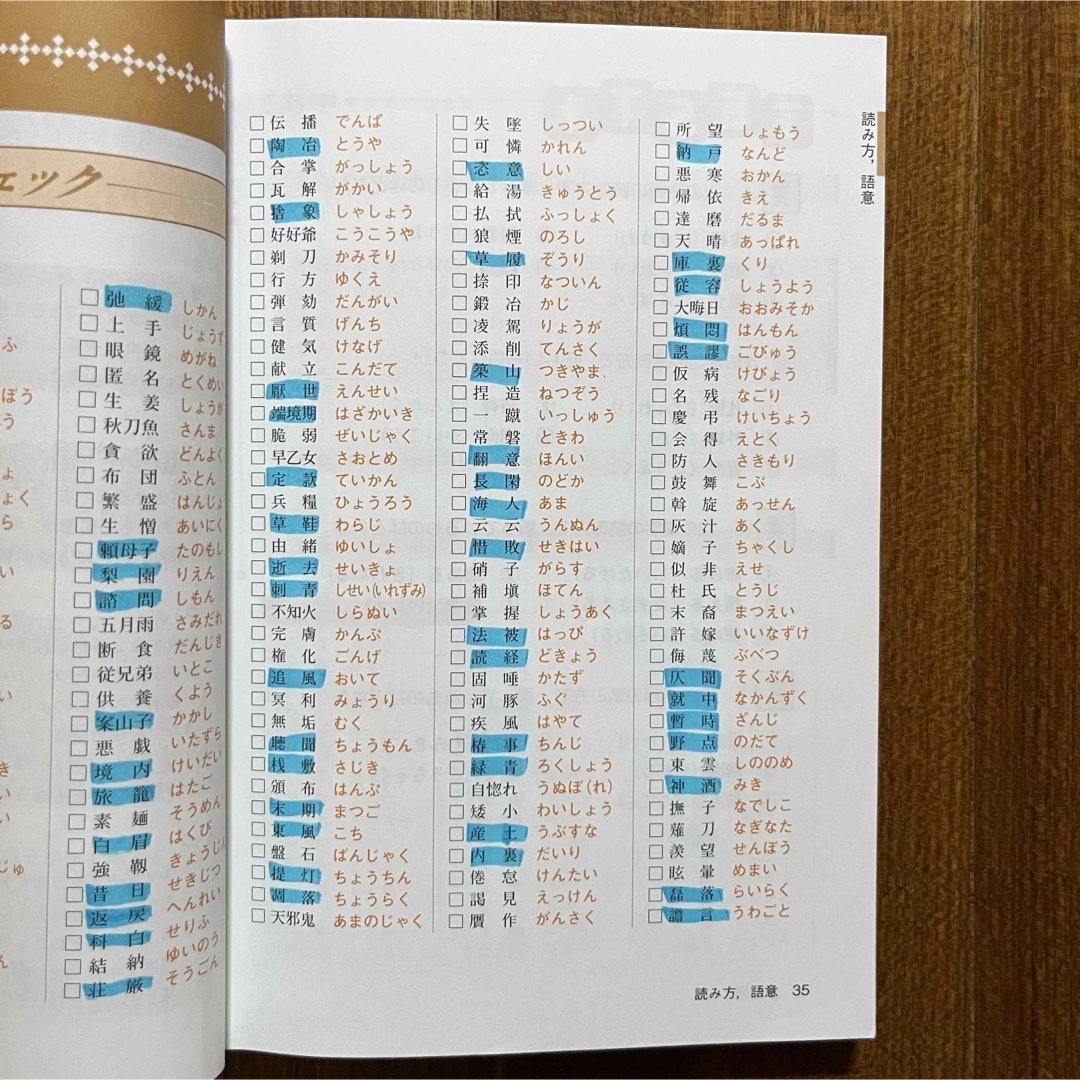 ェック
ふ
ぼう
う
ょ
ょく
ら
い
る
い
き
ん
じゅ
ん
き
い
□ 弛緩 しかん
□ 上手 じょうず
□ 眼鏡 めがね
□ 匿名 とくめい
□ 生姜 しょうが
□ 秋刀魚 さんま
□ 貪欲 どんよく
□ 布団 ふとん
□ 繁盛 はんじょ
□ 生憎 あいにく
□ 頼母子 たのもし
□ 梨園 りえん
□ 諮問 しもん
□ 五月雨 さみだれ
□ 断食 だんじき
□ 従兄弟 いとこ
□ 供養 くよう
□ 案山子 かかし
□ 悪戯 いたずら
□ 境内 けいだい
□ 旅籠 はたご
□ 素麺 そうめん
□ 白眉 はくび
□ 強靱 きょうじん
□ 昔日 せきじつ
□ 返戻 へんれい
□ 科白 せりふ
□ 結納 ゆいのう
□ 荘厳 そうごん
□ 伝播 でんぱ
□ 陶冶 とうや
□ 合掌 がっしょう
□ 瓦解 がかい
□ 捨象 しゃしょう
□ 好好爺 こうこうや
□ 剃刀 かみそり
□ 行方 ゆくえ
□ 弾劾 だんがい
□ 言質 げんち
□ 健気 けなげ
□ 献立 こんだて
□ 厭世 えんせい
□ 端境期 はざかいき
□ 脆弱 ぜいじゃく
□ 早乙女 さおとめ
□ 定款 ていかん
□ 兵糧 ひょうろう
□ 草鞋 わらじ
□ 由緒 ゆいしょ
□ 逝去 せいきょ
□ 刺青 しせい(いれずみ)
□ 不知火 しらぬい
□ 完膚 かんぷ
□ 権化 ごんげ
□ 追風 おいて
□ 冥利 みょうり
□ 無垢 むく
□ 聴聞 ちょうもん
□ 桟敷 さじき
□ 頒布 はんぷ
□ 末期 まつご
□ 東風 こち
□ 盤石 ばんじゃく
□ 提灯 ちょうちん
□ 凋落 ちょうらく
□ 天邪鬼 あまのじゃく
□ 失墜 しっつい
□ 可憐 かれん
□ 恣意 しい
□ 給湯 きゅうとう
□ 払拭 ふっしょく
□ 狼煙 のろし
□ 草履 ぞうり
□ 捺印 なついん
□ 鍛冶 かじ
□ 凌駕 りょうが
□ 添削 てんさく
□ 築山 つきやま
□ 捏造 ねつぞう
□ 一蹴 いっしゅう
□ 常磐 ときわ
□ 翻意 ほんい
□ 長閑 のどか
□ 海人 あま
□ 云云 うんぬん
□ 惜敗 せきはい
□ 硝子 がらす
□ 補塡 ほてん
□ 掌握 しょうあく
□ 法被 はっぴ
□ 読経 どきょう
□ 固唾 かたず
□ 河豚 ふぐ
□ 疾風 はやて
□ 椿事 ちんじ
□ 緑青 ろくしょう
□ 自惚れ うぬぼ(れ)
□ 矮小 わいしょう
□ 産土 うぶすな
□ 内裏 だいり
□ 倦怠 けんたい
□ 謁見 えっけん
□ 贋作 がんさく
□ 所望 しょもう
□ 納戸 なんど
□ 悪寒 おかん
□ 帰依 きえ
□ 達磨 だるま
□ 天晴 あっぱれ
□ 庫裏 くり
□ 従容 しょうよう
□ 大晦日 おおみそか
□ 煩悶 はんもん
□ 誤謬 ごびゅう
□ 仮病 けびょう
□ 名残 なごり
□ 慶弔 けいちょう
□ 会得 えとく
□ 防人 さきもり
□ 鼓舞 こぶ
□ 斡旋 あっせん
□ 灰汁 あく
□ 嫡子 ちゃくし
□ 似非 えせ
□ 杜氏 とうじ
□ 末裔 まつえい
□ 許嫁 いいなずけ
□ 侮蔑 ぶべつ
□ 仄聞 そくぶん
□ 就中 なかんずく
□ 暫時 ざんじ
□ 野点 のだて
□ 東雲 しののめ
□ 神酒 みき
□ 撫子 なでしこ
□ 薙刀 なぎなた
□ 羨望 せんぼう
□ 眩暈 めまい
□ 磊落 らいらく
□ 譫言 うわごと
読み方，語意
読み方，語意 35